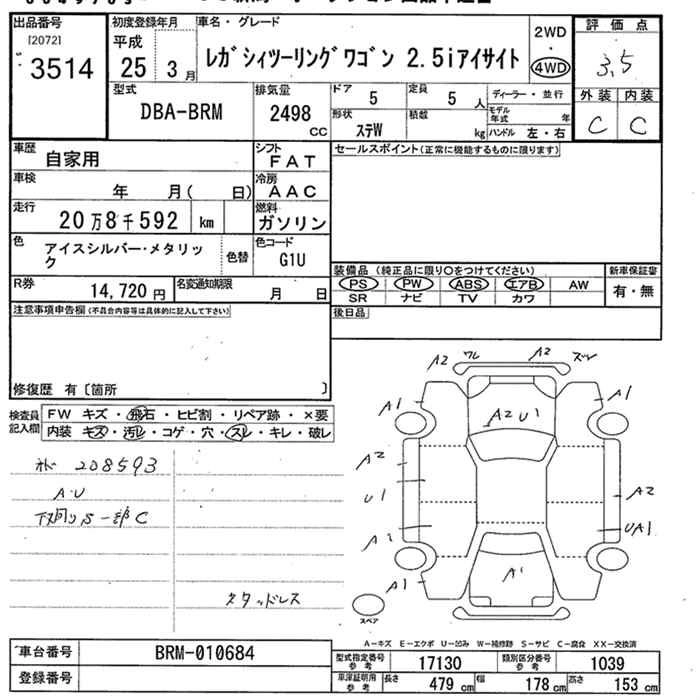 出品番号 初度登録年月 車名・グレード 2WD 評価点
[2072] 平成 ・
3514 25 3月 レガシィツーリングワゴン 2.5iアイサイト 4WD 3.5
型式 排気量 ドア 定員 ディーラー・並行 外装 内装
DBA-BRM 2498 5 5人 モデル年式 年 C C
cc 形状 積載
ステW kg ハンドル 左・右
車歴 シフト セールスポイント(正常に機能するものに限ります)
自家用 FAT
車検 冷房
年 月( 日) AAC
走行 燃料
20万8千592 km ガソリン
色 色替 色コード
アイスシルバー・メタリック G1U
装備品(純正品に限り○をつけてください) 新車保証書
R券 名変通知期限 PS PW ABS エアB AW 有・無
14,720円 月 日 SR ナビ TV カワ
注意事項申告欄(不具合内容等は具体的に記入して下さい) 後日品
修復歴 有〔箇所 〕
検査員記入欄 FW キズ・飛石・ヒビ割・リペア跡・×要
内装 キズ・汚レ・コゲ・穴・スレ・キレ・破レ
208593
A.U
下回りS一部C
スタッドレス
A2 ワレ A2 ズレ
A1 A1
A2 U1
A2
U1 A2
UA1
A1
A1
スペア
A-キズ E-エクボ U-凹み W-補修跡 S-サビ C-腐食 XX-交換済
車台番号 BRM-010684 型式指定番号 参考 17130 類別区分番号 参考 1039
登録番号 車深証明用 参考 長さ 479cm 幅 178cm 高さ 153cm